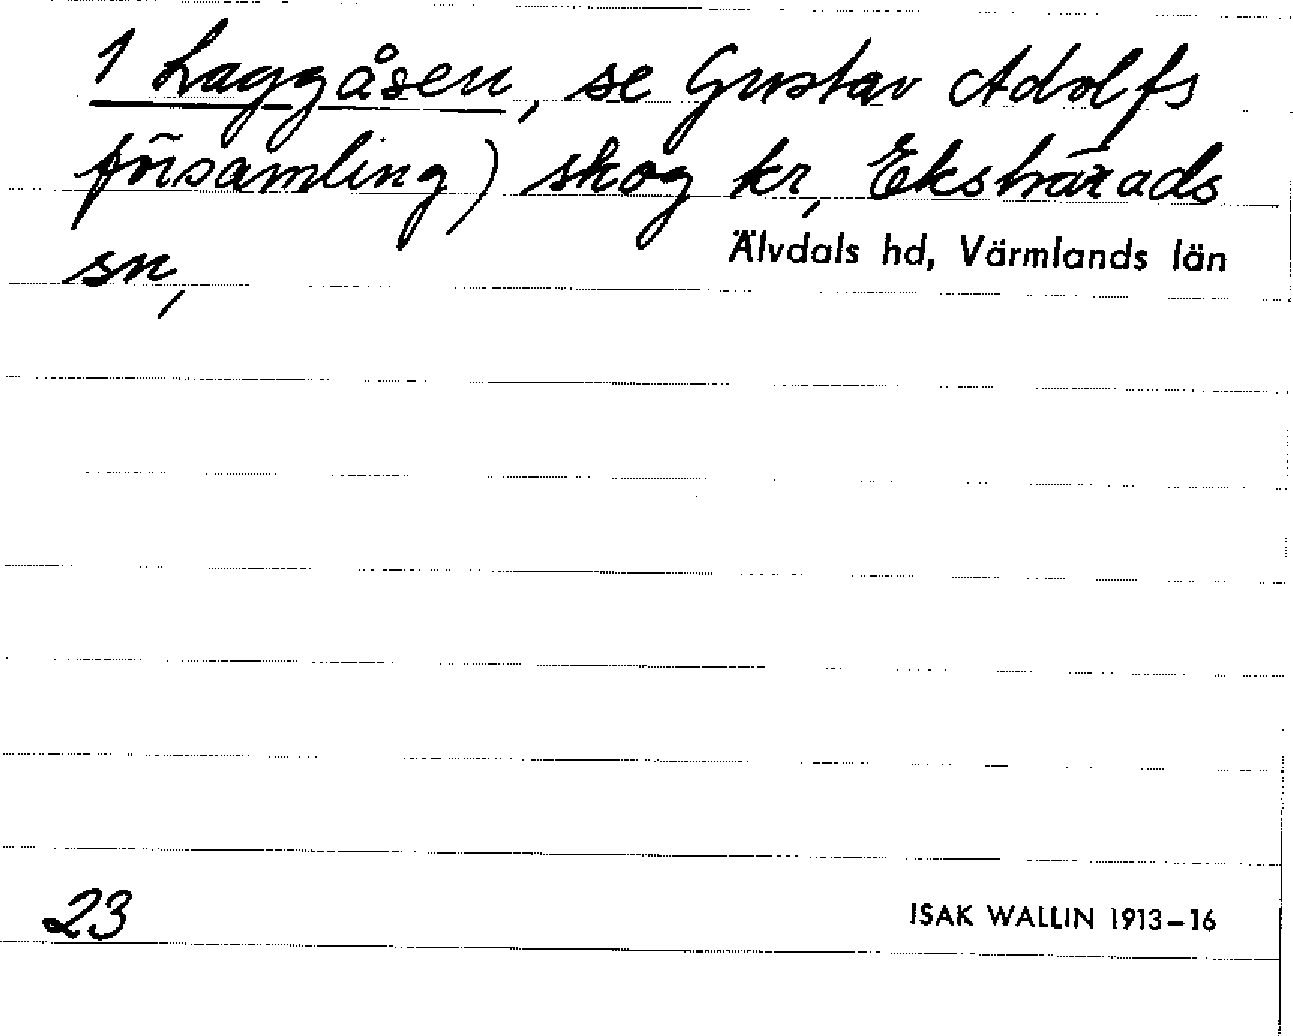 1 Laggåsen, se Gustav Adolfs
församling) skog kr, Ekshärads
sn,
Älvdals hd, Värmlands län
23
ISAK WALLIN 1913-16